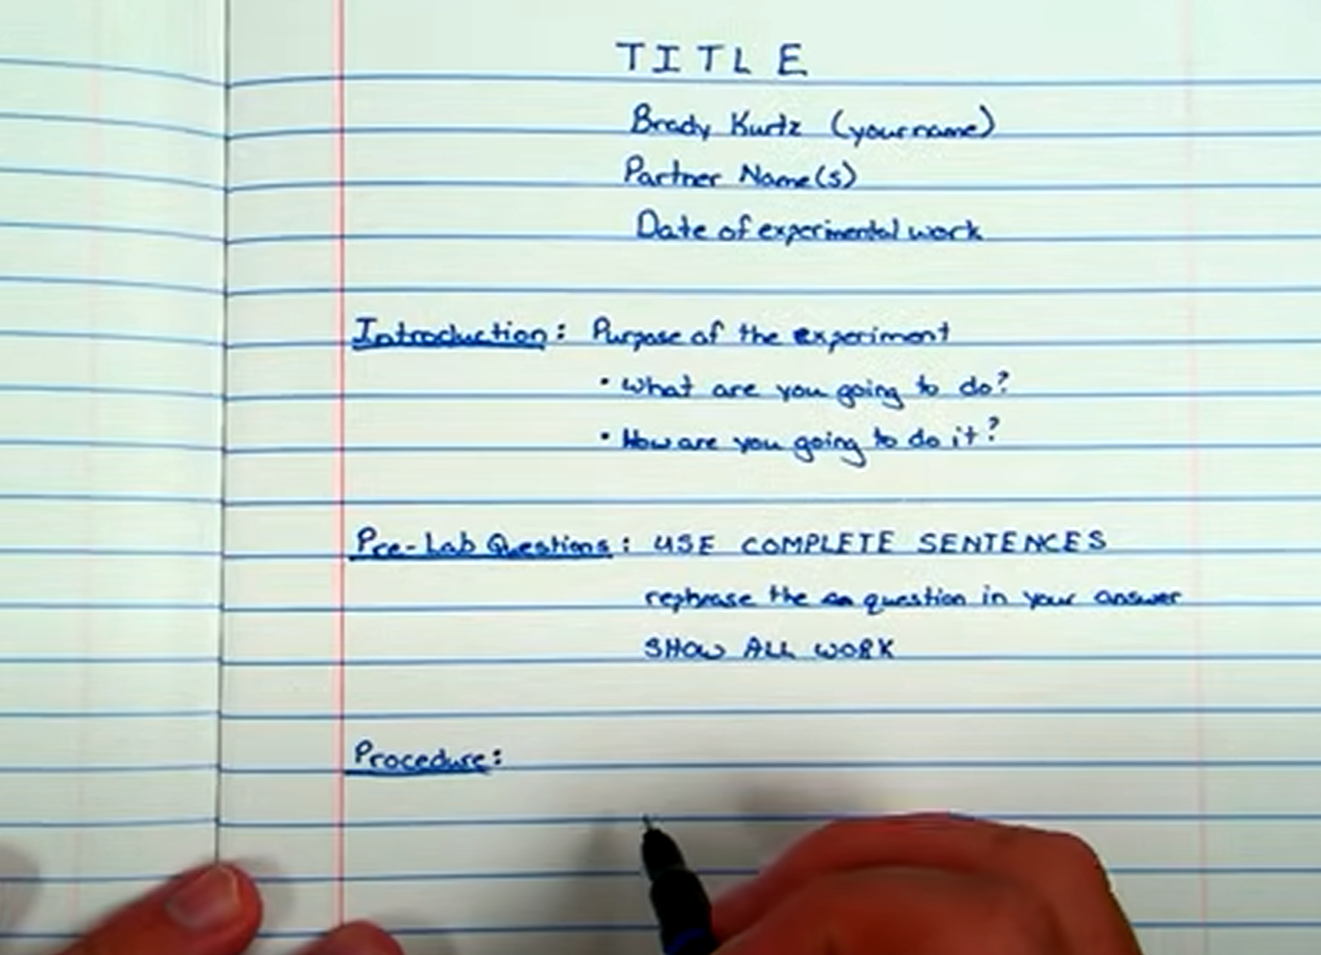 TITLE
Brady Kurtz (your name)
Partner Name(s)
Date of experimental work
Introduction: Purpose of the experiment
• What are you going to do?
• How are you going to do it?
Pre-Lab Questions: USE COMPLETE SENTENCES
rephrase the question in your answer
SHOW ALL WORK
Procedure: